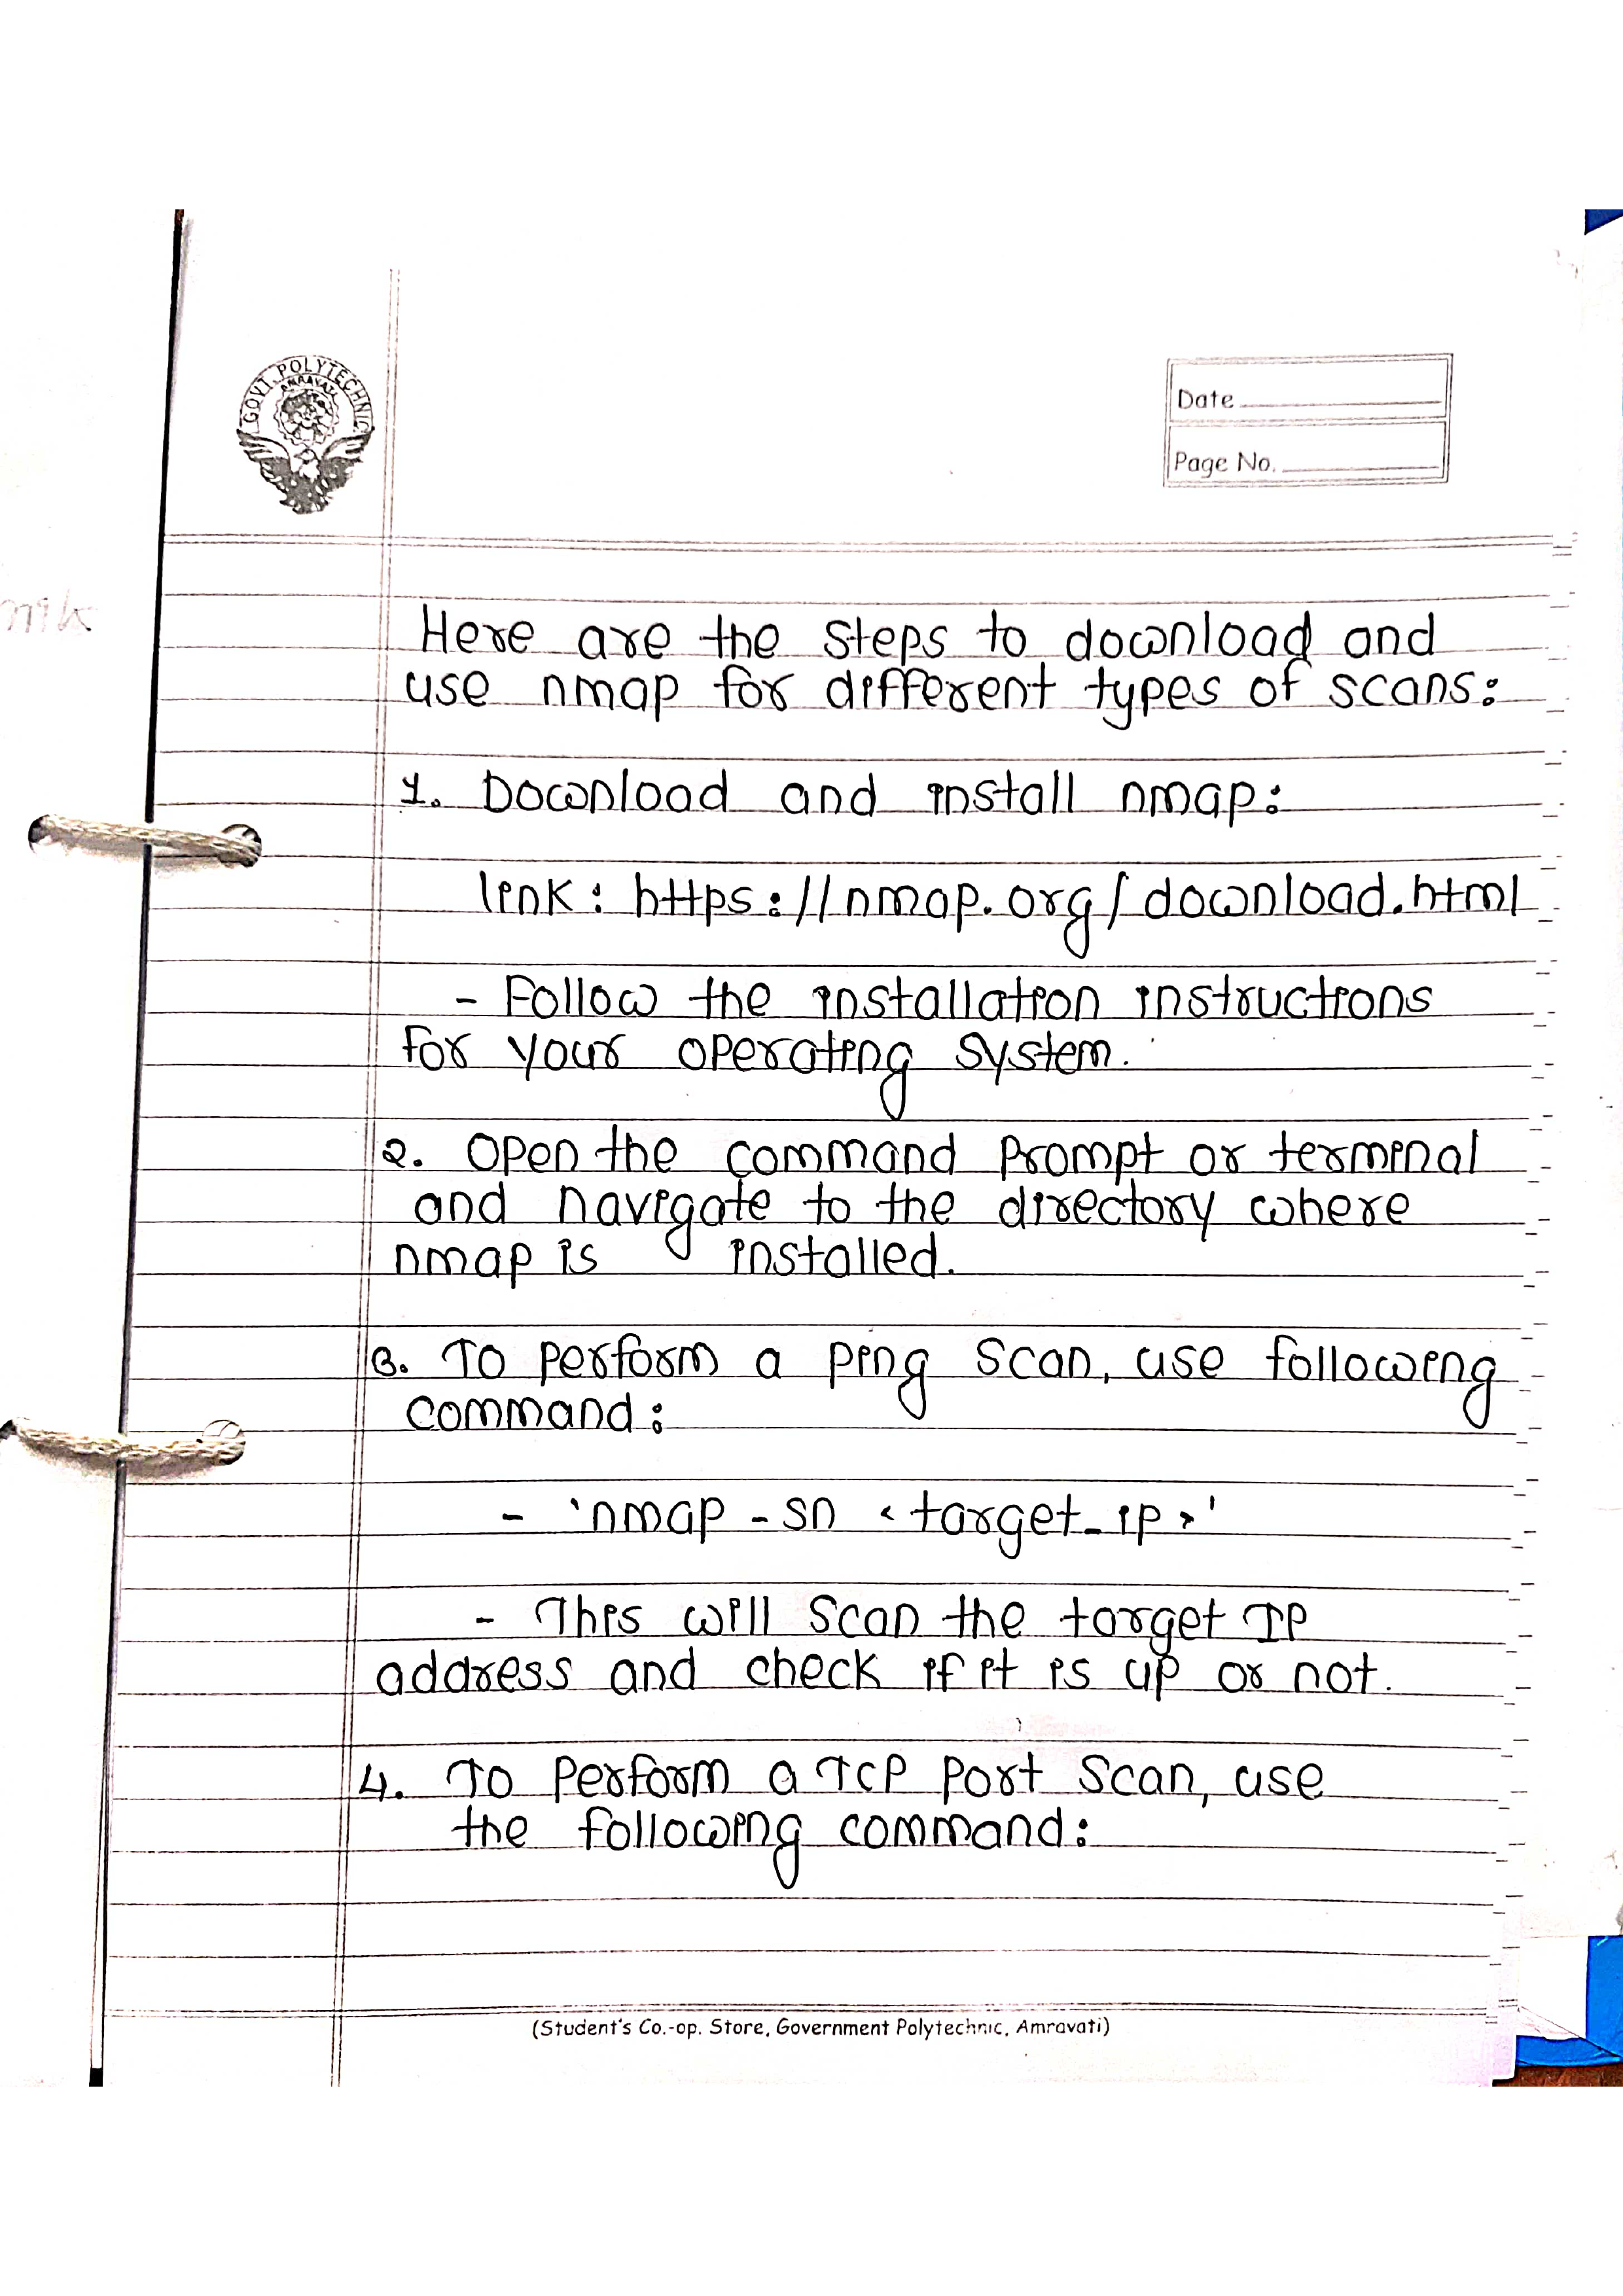 GOVT. POLYTECHNIC
AMRAVATI
Date
Page No.
Here are the steps to download and
use nmap for different types of scans:
1. Download and install nmap:
link: https://nmap.org/download.html
- Follow the installation instructions
for your operating system.
2. Open the command prompt or terminal
and navigate to the directory where
nmap is installed.
3. To perform a ping scan, use following
command:
- 'nmap -sn <target_ip>'
- This will scan the target IP
address and check if it is up or not.
4. To perform a TCP port scan, use
the following command:
(Student's Co.-op. Store, Government Polytechnic, Amravati)